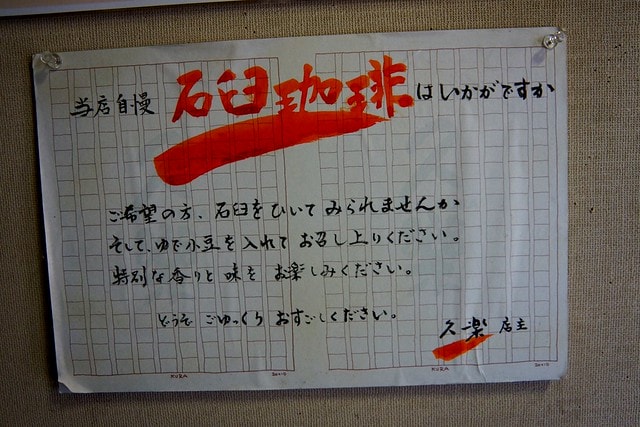 当店自慢 石臼珈琲 はいかがですか
ご希望の方、石臼をひいてみられませんか
そして、ゆで小豆を入れてお召し上りください。
特別な香りと味をお楽しみください。
どうぞ ごゆっくり おすごしください。
久楽 店主
KURA 20×10 KURA 20×10